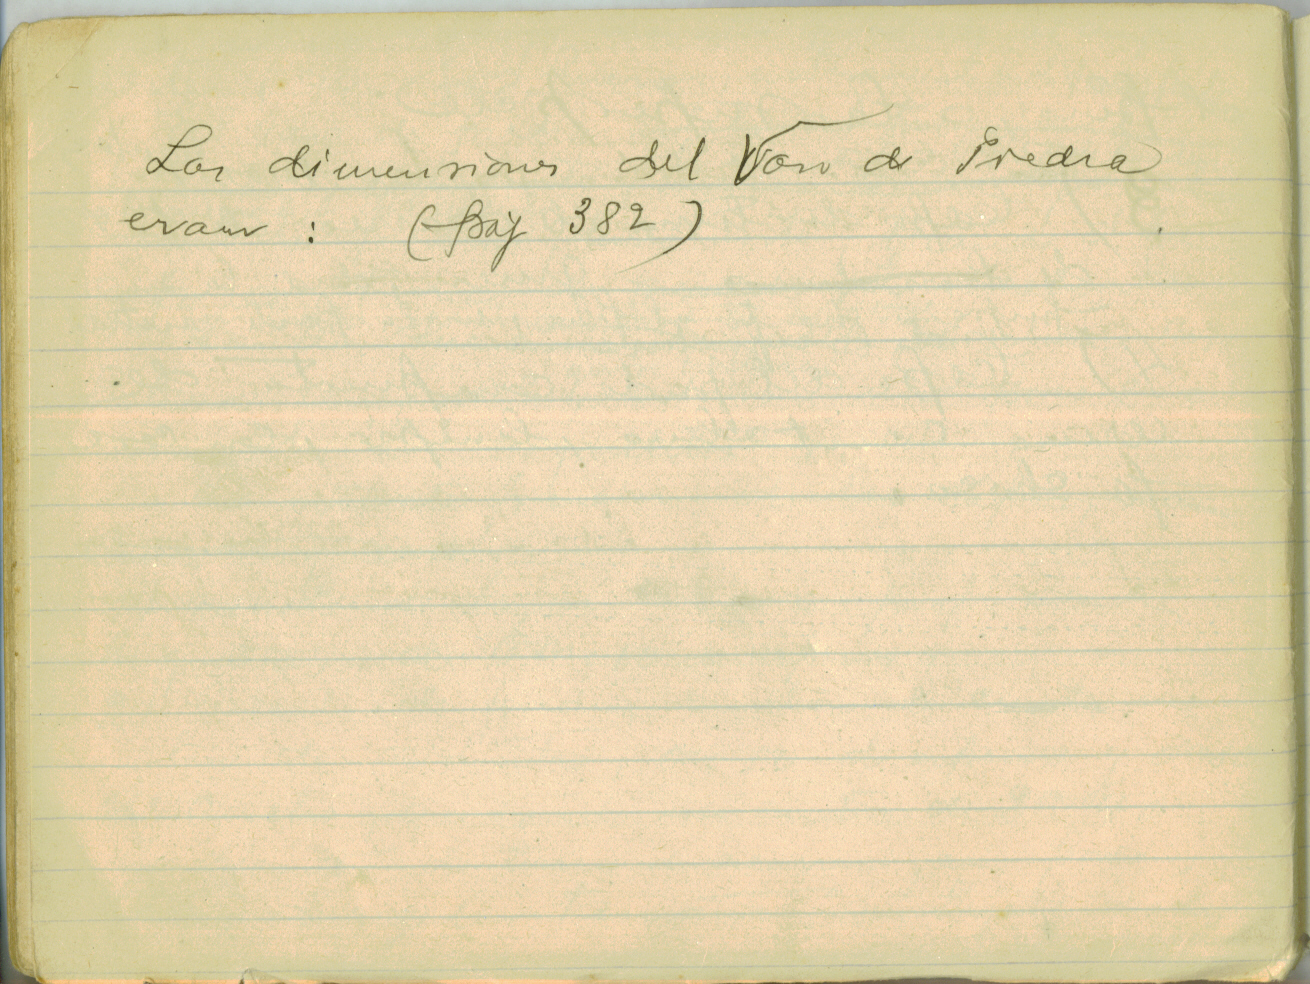 Las dimensiones del Vaso de Piedra
eran : (pag 382)